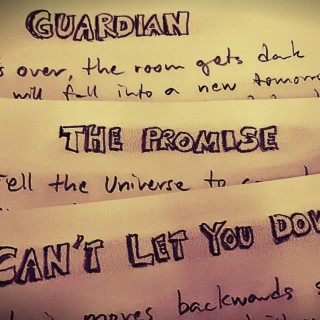 GUARDIAN
s over, the room gets dark
will fall into a new tomorro
THE PROMISE
Tell the Universe to
CAN'T LET YOU DOW
moves backwards s